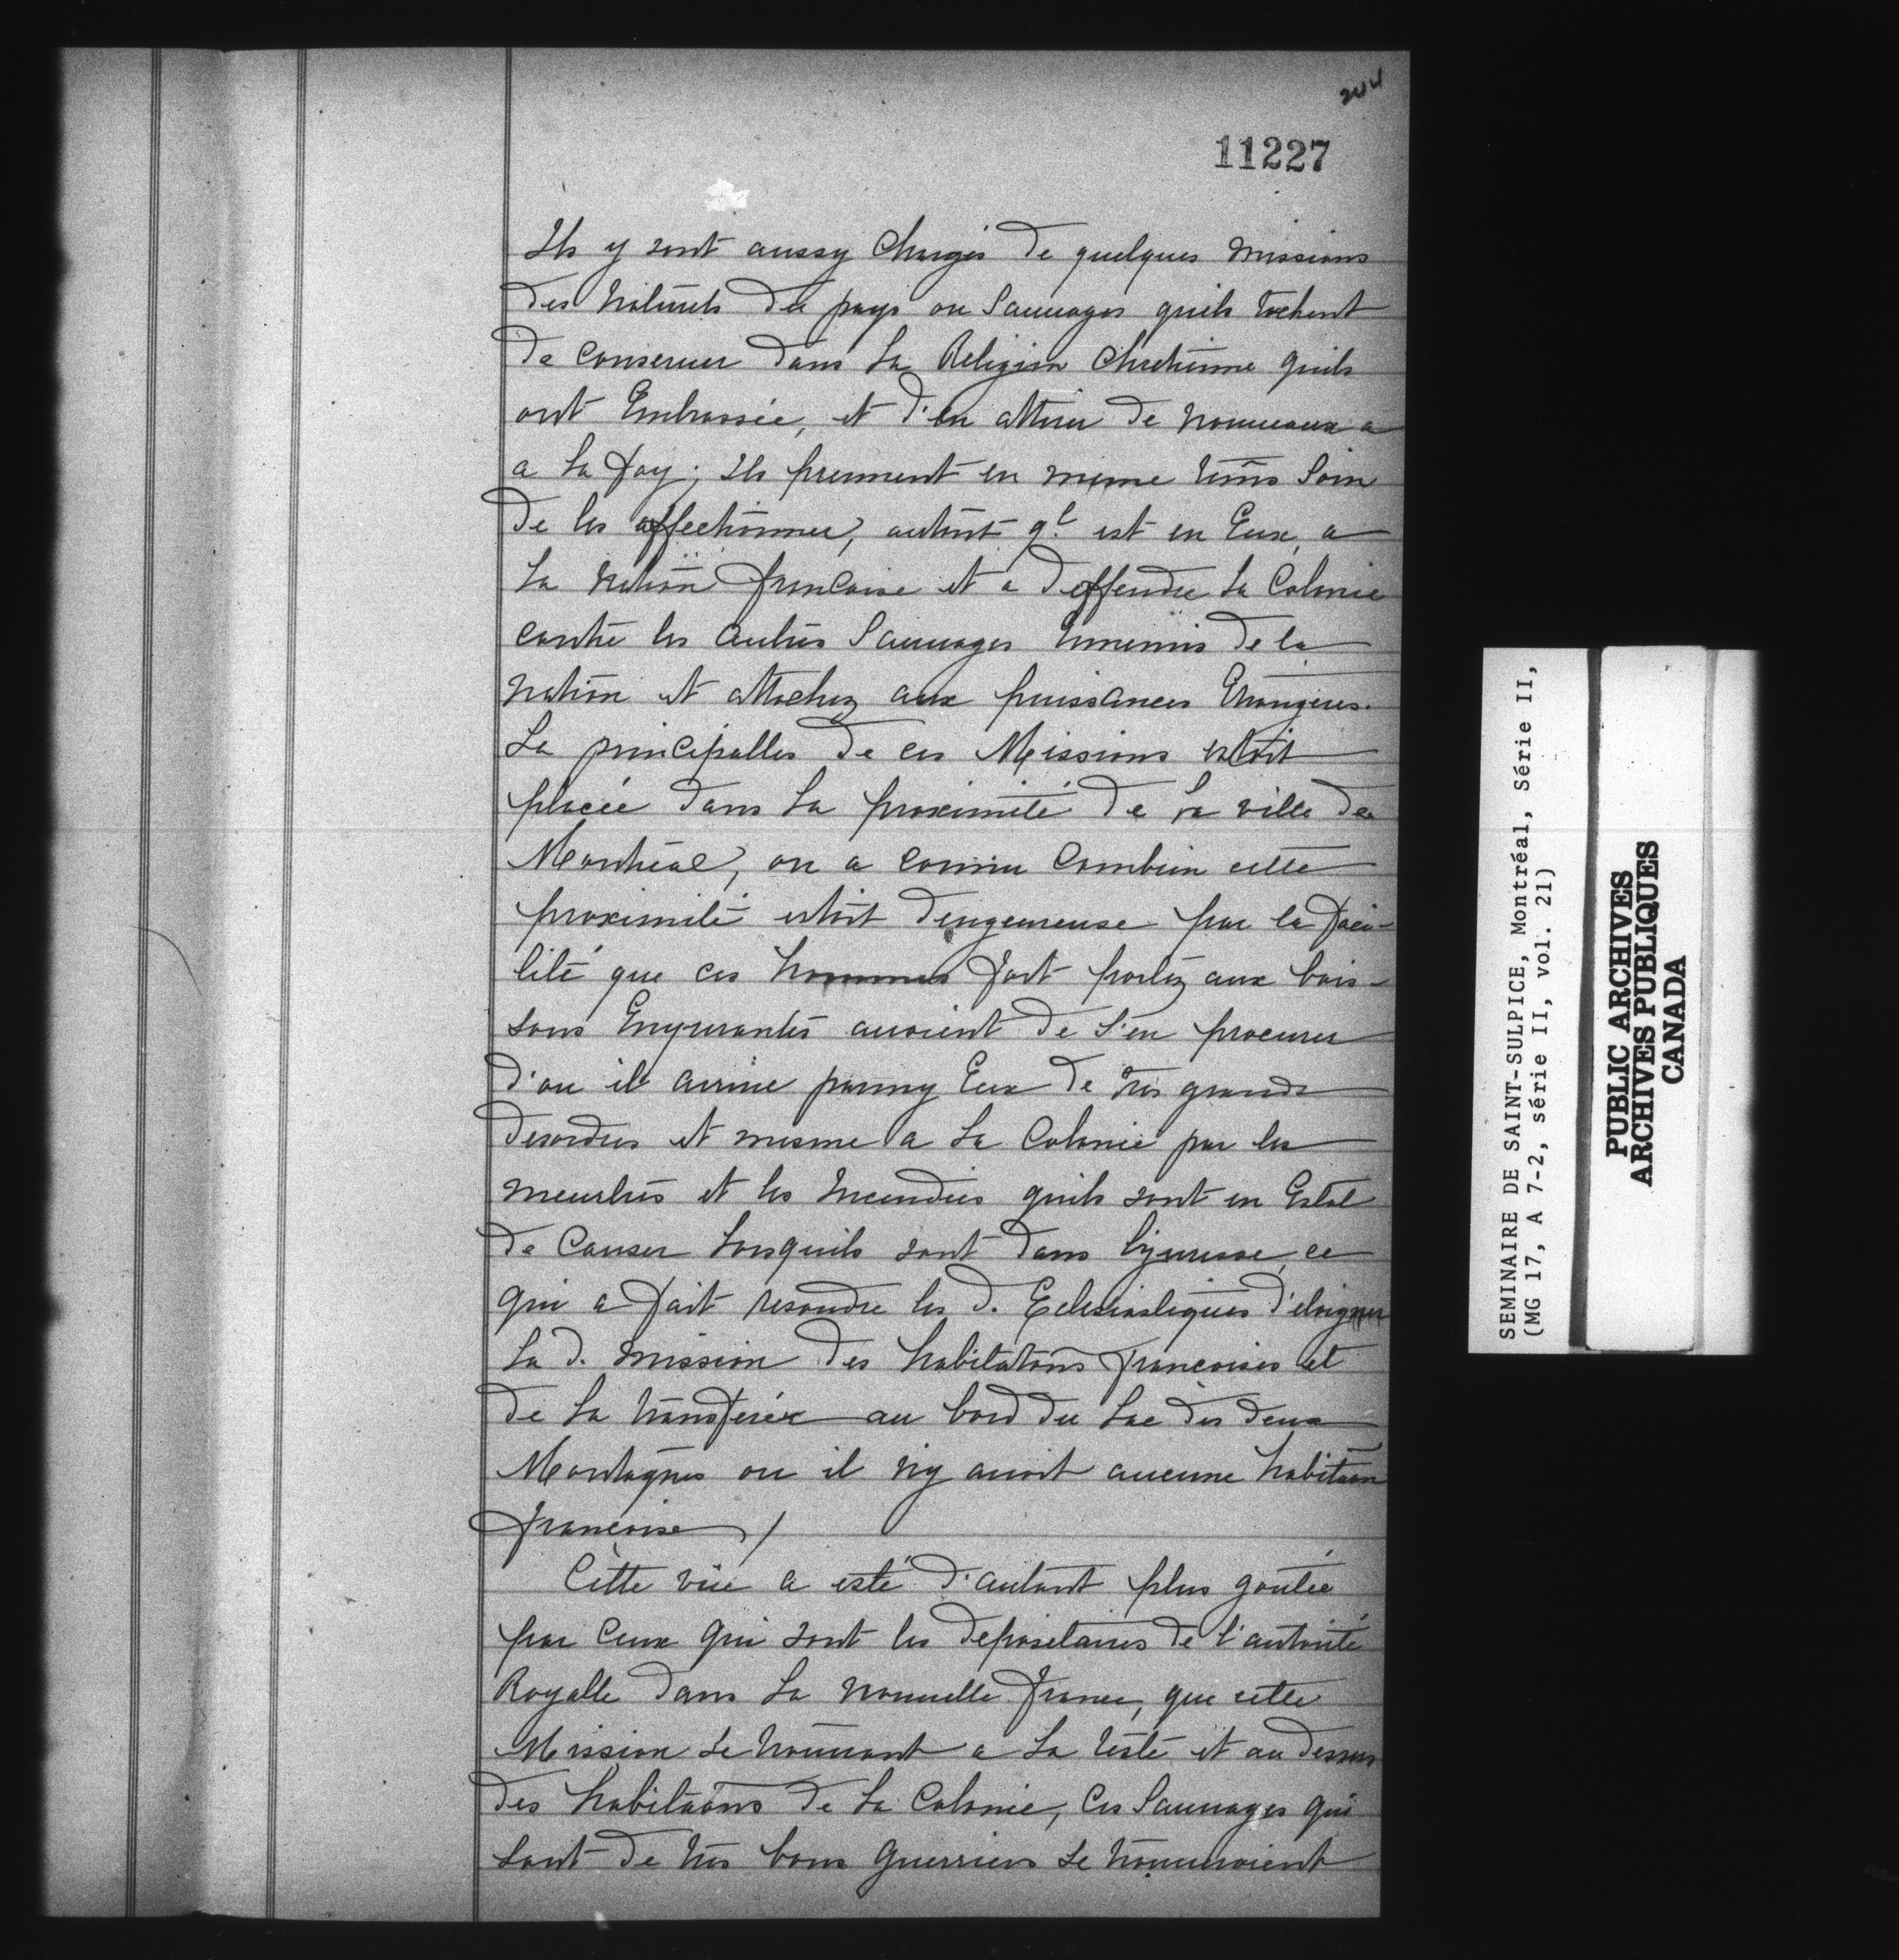 11227
Ils y sont aussy Chargés de quelques Missions
des Naturels du pays ou Sauuages quils tachent
de Conseruer dans La Religion Chretienne quils
ont Embrassée, et d'en attirer de nouueaux a
a La foy; Ils prennent en meme tems Soin
de les affectionner, autant ql est en Eux, a
La Nation francoise et a deffendre La Colonie
contre les Autres Sauuages Ennemis de la
Nation et attachez aux puissances Etrangeres.
La principalles de ces Missions estoit
placée dans La proximité de La ville de
Montréal, on a connu Combien cette
proximité estoit dengeureuse par la faci-
lité que ces hommes fort portez aux bois-
sons Enyurantes auoient de S'en procurer
d'ou il arriue parmy Eux de tres grands
desordres et mesme a La Colonie par les
meurtres et les Incendies quils sont en Estat
de Causer Lorsquils sont dans l'yuresse, ce
qui a fait resoudre les d. Eclesiastiques d'eloigner
La d. Mission des habitations francoises et
de La transferer au bord du Lac des deux
Montagnes ou il n'y auoit aucune habitaon
francoise /
Cette vüe a esté d'autant plus goutée
par Ceux qui sont les depositaires de l'autorité
Royalle dans La Nouuelle france, que cette
Mission se trouuant a La teste et au dessus
des habitaons de La Colonie, Ces Sauuages qui
sont de tres bons guerriers se trouueroient
SEMINAIRE DE SAINT-SULPICE, Montréal, Série II,
(MG 17, A 7-2, série II, vol. 21)
PUBLIC ARCHIVES
ARCHIVES PUBLIQUES
CANADA